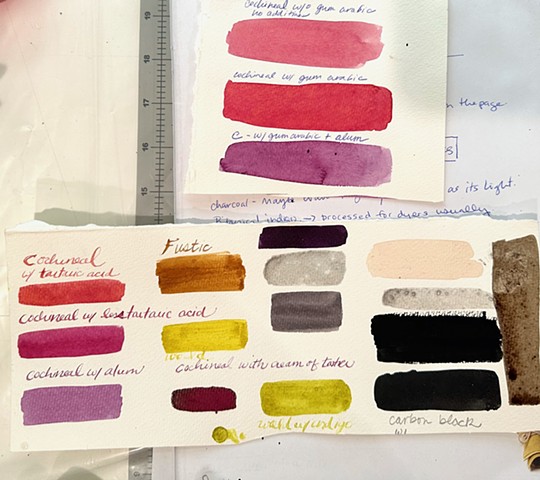 cochineal w/o gum arabic
no additive
cochineal w/ gum arabic
C - w/ gum arabic + alum
on the page
charcoal - as its light.
Botanical indigo → processed for dyers usually
19
18
17
16
15
Cochineal
w/ tartaric acid
Fustic
cochineal w/ less tartaric acid
weld
cochineal w/ alum
cochineal with cream of tarter
weld w/ indigo
carbon black
w/